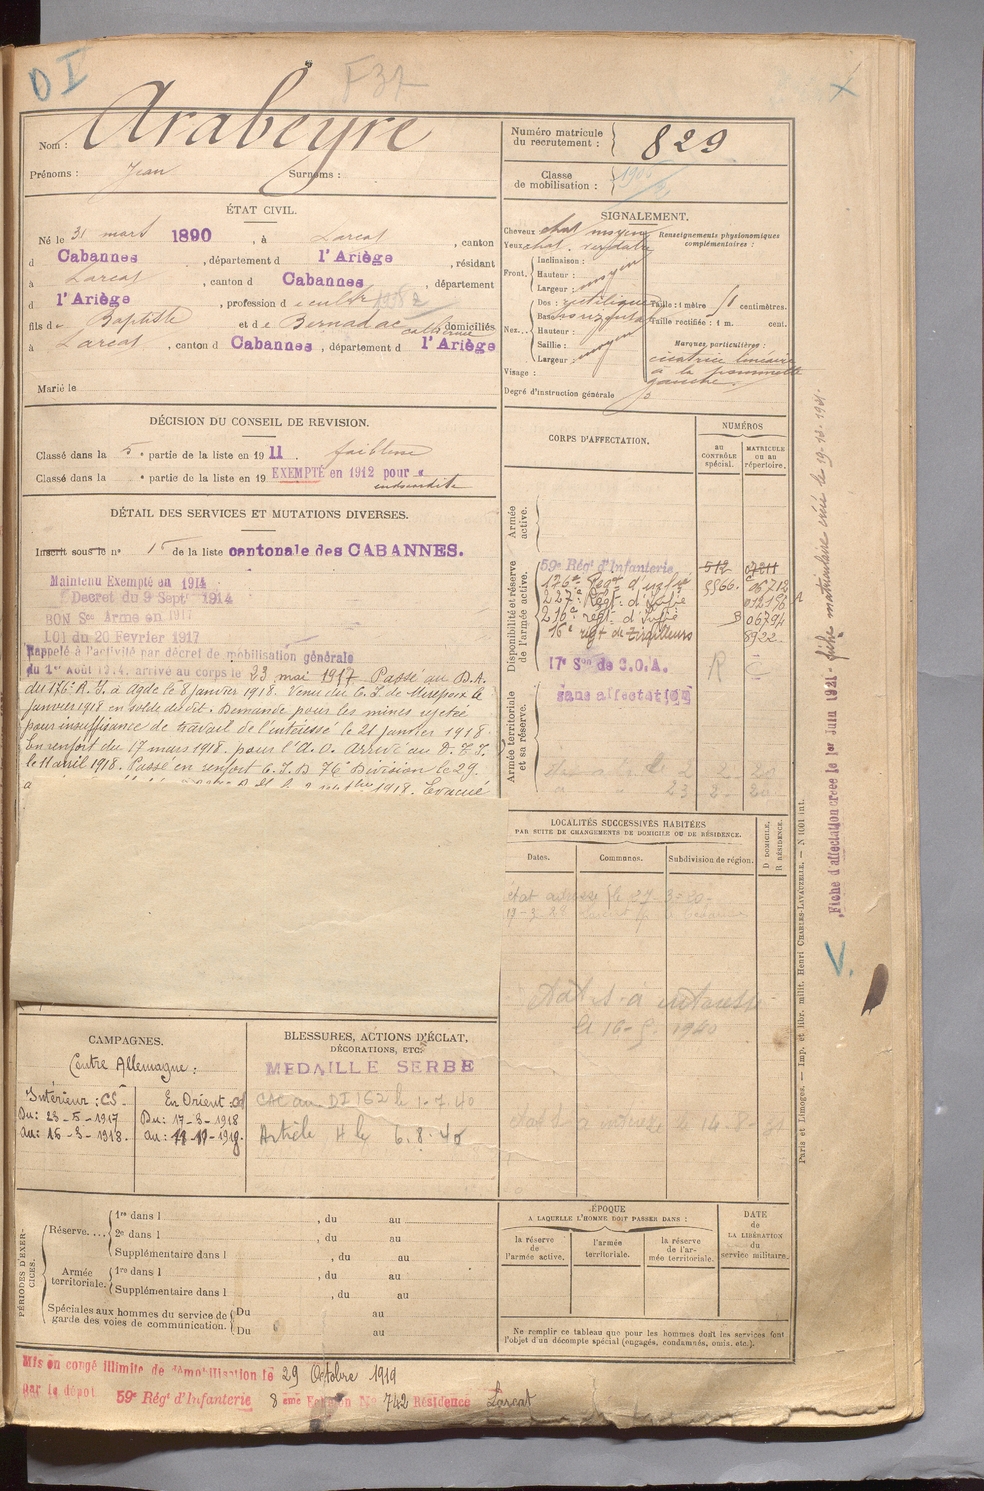 O I
F 37
Nom : Arabeyre
Prénoms : Jean Surnoms :
Numéro matricule du recrutement : 829
Classe de mobilisation :
ÉTAT CIVIL.
Né le 31 mars 1890, à Larcat, canton
d Cabannes, département d l'Ariège, résidant
à Larcat, canton d Cabannes, département
d l'Ariège, profession d
fils de Baptiste et de Bernadac catherine domiciliés
à Larcat, canton d Cabannes, département d l'Ariège
Marié le
SIGNALEMENT.
Cheveux chat. moyen
Yeux chat. verdatre
Renseignements physionomiques complémentaires :
Front. Inclinaison :
Hauteur : moyen
Largeur :
Nez... Dos : rectiligne
Base
Hauteur :
Saillie : moyen
Largeur :
Visage :
Degré d'instruction générale
Taille : 1 mètre centimètres.
Taille rectifiée : 1 m. cent.
Marques particulières :
cicatrice linéaire
à la pommette
gauche.
DÉCISION DU CONSEIL DE REVISION.
Classé dans la 5e partie de la liste en 1911. faiblesse
Classé dans la partie de la liste en 19 EXEMPTÉ en 1912 pour
DÉTAIL DES SERVICES ET MUTATIONS DIVERSES.
Inscrit sous le n° 15 de la liste cantonale des CABANNES.
Maintenu Exempté en 1914
Décret du 9 Sept 1914
BON Sce Armé en 1917
LOI du 20 Février 1917
Rappelé à l'activité par décret de mobilisation générale
du 1er Août 1914. arrivé au corps le 23 mai 1917. Passé au D.A.
du 176e R.I. à Agde le 8 janvier 1918. Venu du C.I. de Mirepoix le
janvier 1918 en solde du dit. Demande pour les mines rejetée
pour insuffisance de travail de l'intéressé le 21 janvier 1918.
En renfort du 17 mars 1918. pour l'A.O. Arrivé au D.T.I.
le 11 avril 1918. Passé en renfort C.I.D 76e Division le 29.
1918. Evacué
CORPS D'AFFECTATION.
NUMÉROS
au CONTRÔLE spécial.
MATRICULE ou au répertoire.
Armée active.
Disponibilité et réserve de l'armée active.
59e Régt d'Infanterie 512 07211
176e Régt d'infie 5566. 06712
227e Régt. d'Infie
210e régt. d'Infie 06794
16e régt de tirailleurs 8922
17e Son de C.O.A.
Armée territoriale et sa réserve.
sans affectation
LOCALITÉS SUCCESSIVES HABITÉES
PAR SUITE DE CHANGEMENTS DE DOMICILE OU DE RÉSIDENCE.
Dates. Communes. Subdivision de région. D DOMICILE, R RÉSIDENCE.
le 16-5-1940
CAMPAGNES.
Contre Allemagne :
Intérieur : CS
Du : 23-5-1917
au : 16-3-1918.
En Orient : CD
Du : 17-3-1918
au : 11-11-1918.
BLESSURES, ACTIONS D'ÉCLAT, DÉCORATIONS, ETC.
MEDAILLE SERBE
CAC au DI 162 le 1-7-40
Article 4 le 6.8.40
PÉRIODES D'EXERCICES.
Réserve.... 1re dans l , du au
2e dans l , du au
Supplémentaire dans l , du au
Armée territoriale. 1re dans l , du au
Supplémentaire dans l , du au
Spéciales aux hommes du service de garde des voies de communication. Du au
Du au
ÉPOQUE
A LAQUELLE L'HOMME DOIT PASSER DANS :
la réserve de l'armée active.
l'armée territoriale.
la réserve de l'armée territoriale.
DATE de LA LIBÉRATION du service militaire.
Ne remplir ce tableau que pour les hommes dont les services font l'objet d'un décompte spécial (engagés, condamnés, omis, etc.).
Mis en congé illimité de démobilisation le 29 Octobre 1919
par le dépôt 59e Régt d'Infanterie 8ème Echelon No 742 Résidence Larcat
Fiche d'affectation créée le 1er Juin 1921 - fiche matriculaire créée le 19-10-1921.
Paris et Limoges. — Imp. et libr. milit. Henri CHARLES-LAVAUZELLE. — N 1001 int.
V.